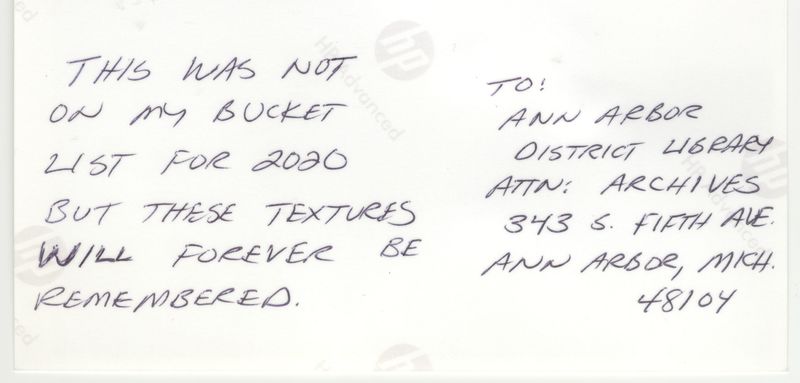 THIS WAS NOT
ON MY BUCKET
LIST FOR 2020
BUT THESE TEXTURES
WILL FOREVER BE
REMEMBERED.
TO:
ANN ARBOR
DISTRICT LIBRARY
ATTN: ARCHIVES
343 S. FIFTH AVE.
ANN ARBOR, MICH.
48104
hp
HP Advanced
hp
Advanced